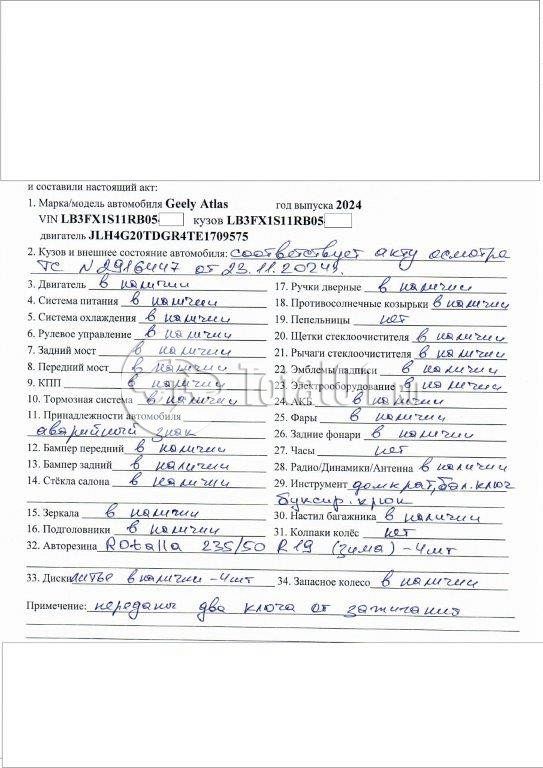 и составили настоящий акт:
1. Марка/модель автомобиля Geely Atlas год выпуска 2024
VIN LB3FX1S11RB05 кузов LB3FX1S11RB05
двигатель JLH4G20TDGR4TE1709575
2. Кузов и внешнее состояние автомобиля: соответствует акту осмотра
ТС N 2916447 от 23.11.2024г.
3. Двигатель в наличии
4. Система питания в наличии
5. Система охлаждения в наличии
6. Рулевое управление в наличии
7. Задний мост в наличии
8. Передний мост в наличии
9. КПП в наличии
10. Тормозная система в наличии
11. Принадлежности автомобиля
аварийный знак
12. Бампер передний в наличии
13. Бампер задний в наличии
14. Стёкла салона в наличии
15. Зеркала в наличии
16. Подголовники в наличии
17. Ручки дверные в наличии
18. Противосолнечные козырьки в наличии
19. Пепельницы нет
20. Щетки стеклоочистителя в наличии
21. Рычаги стеклоочистителя в наличии
22. Эмблемы/надписи в наличии
23. Электрооборудование в наличии
24. АКБ в наличии
25. Фары в наличии
26. Задние фонари в наличии
27. Часы нет
28. Радио/Динамики/Антенна в наличии
29. Инструмент домкрат, бал. ключ
буксир. крюк
30. Настил багажника в наличии
31. Колпаки колёс нет
32. Авторезина Rotalla 235/50 R19 (зима) - 4шт
33. Диски литье в наличии - 4шт
34. Запасное колесо в наличии
Примечание: переданы два ключа от зажигания